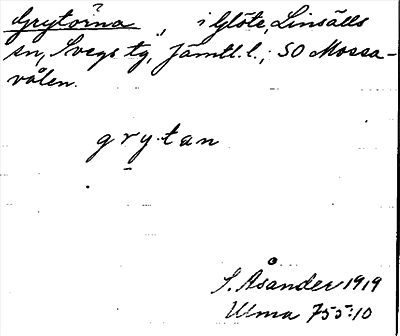 Grytörna, i Glöte, Linsälls
sn, Svegs tg, Jämtl. l.; SO Mossa-
vålen.
grytan
S. Åsander 1919
Ulma 755:10